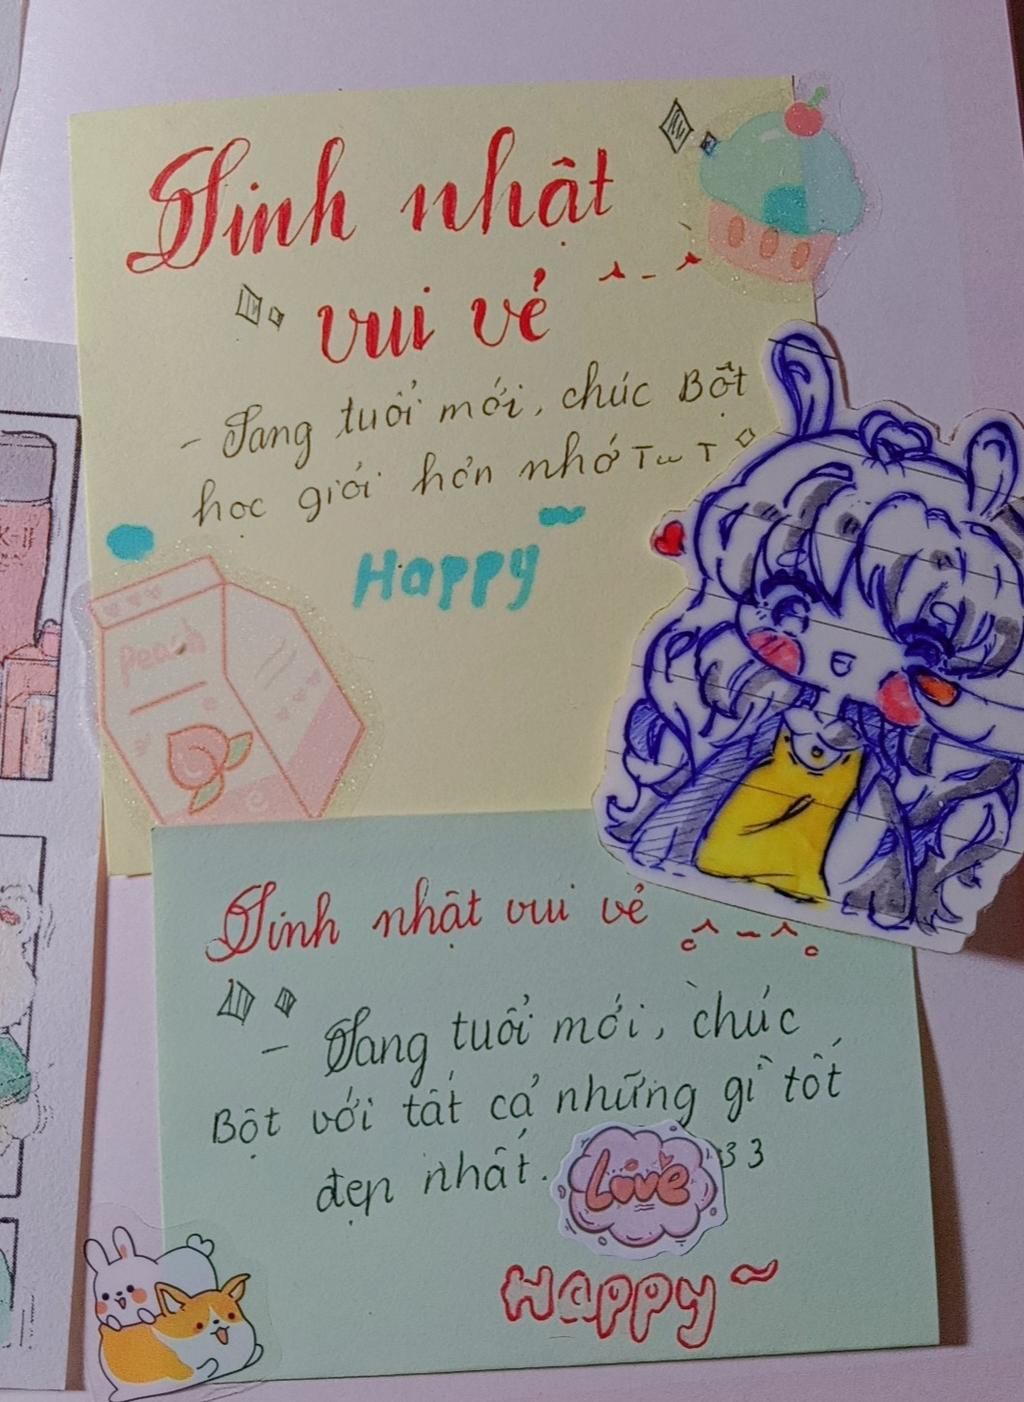 Sinh nhật
vui vẻ ^-^
- Sang tuổi mới, chúc Bột
học giỏi hơn nhớ T ω T
Happy ~
Peach
Sinh nhật vui vẻ
- Sang tuổi mới, chúc
Bột với tất cả những gì tốt
đẹp nhất. 33
Love
Happy ~